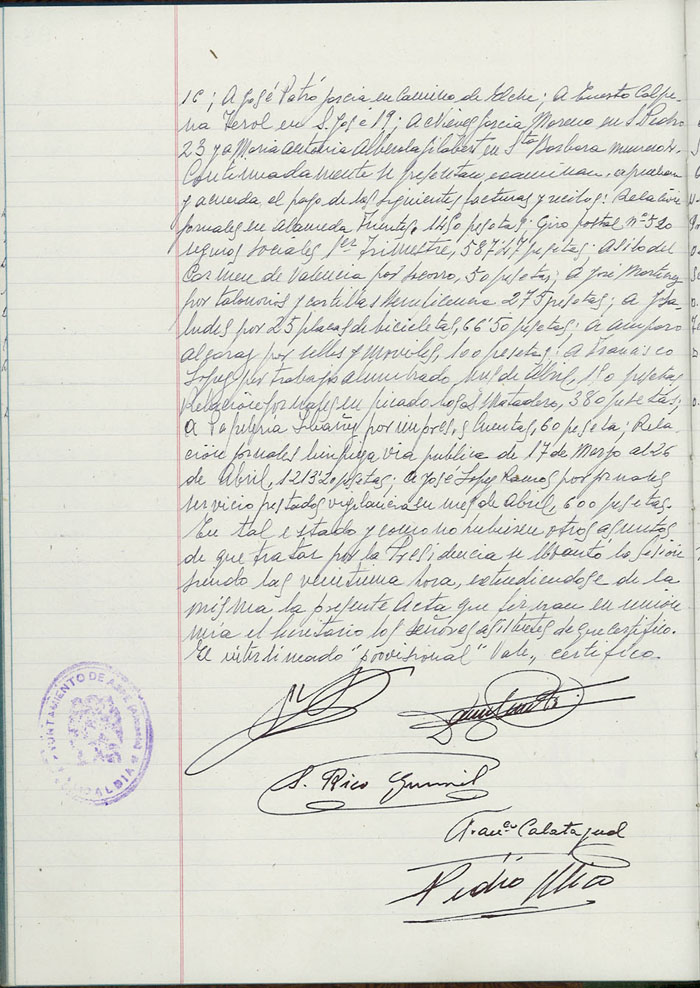 16; A José Patró García en Camino de Elche; A Ernesto Calpe-
na Terol en S. José 19; A Nieves García Moreno en S. Pedro
23 y a Maria Alberola Gilabert en Sta Barbara numero
Continuadamente se presentan, examinan, aprueban
y acuerda el pago de las siguientes facturas y recibos: Relación
jornales en Alameda Fuentes 1450 pesetas; Giro postal nº 520
seguros sociales 1er Trimestre, 587'47 pesetas; Asilo del
Carmen de Valencia por socorro, 50 pesetas; A José Martinez
por talonarios y cartillas beneficencia 275 pesetas; a
por 25 placas de bicicletas, 66'50 pesetas; A Amparo
Algarra por sellos y moviles, 100 pesetas; A Francisco
Lopez por trabajo alumbrado mes de Abril, 180 pesetas
Relación jornales en picado losas Matadero, 380 pesetas;
A por impresos cuentas, 60 peseta; Rela-
ción jornales limpieza via publica de 17 de Marzo al 26
de Abril, 1213'20 pesetas; A José Lopez Ramos por jornales
servicio prestados vigilancia en mes de Abril, 600 pesetas.
En tal estado y como no hubiesen otros asuntos
de que tratar por la Presidencia se levanto la sesión
siendo las veintiuna hora, extendiendose de la
misma la presente Acta que firman en union
mia el secretario los señores asistentes de que certifico.
El interlineado "provisional" Vale, certifico.
S. Rico
Franco Calatayud
Pedro Rico
AYUNTAMIENTO DE ASPE (Alicante)
ALCALDIA